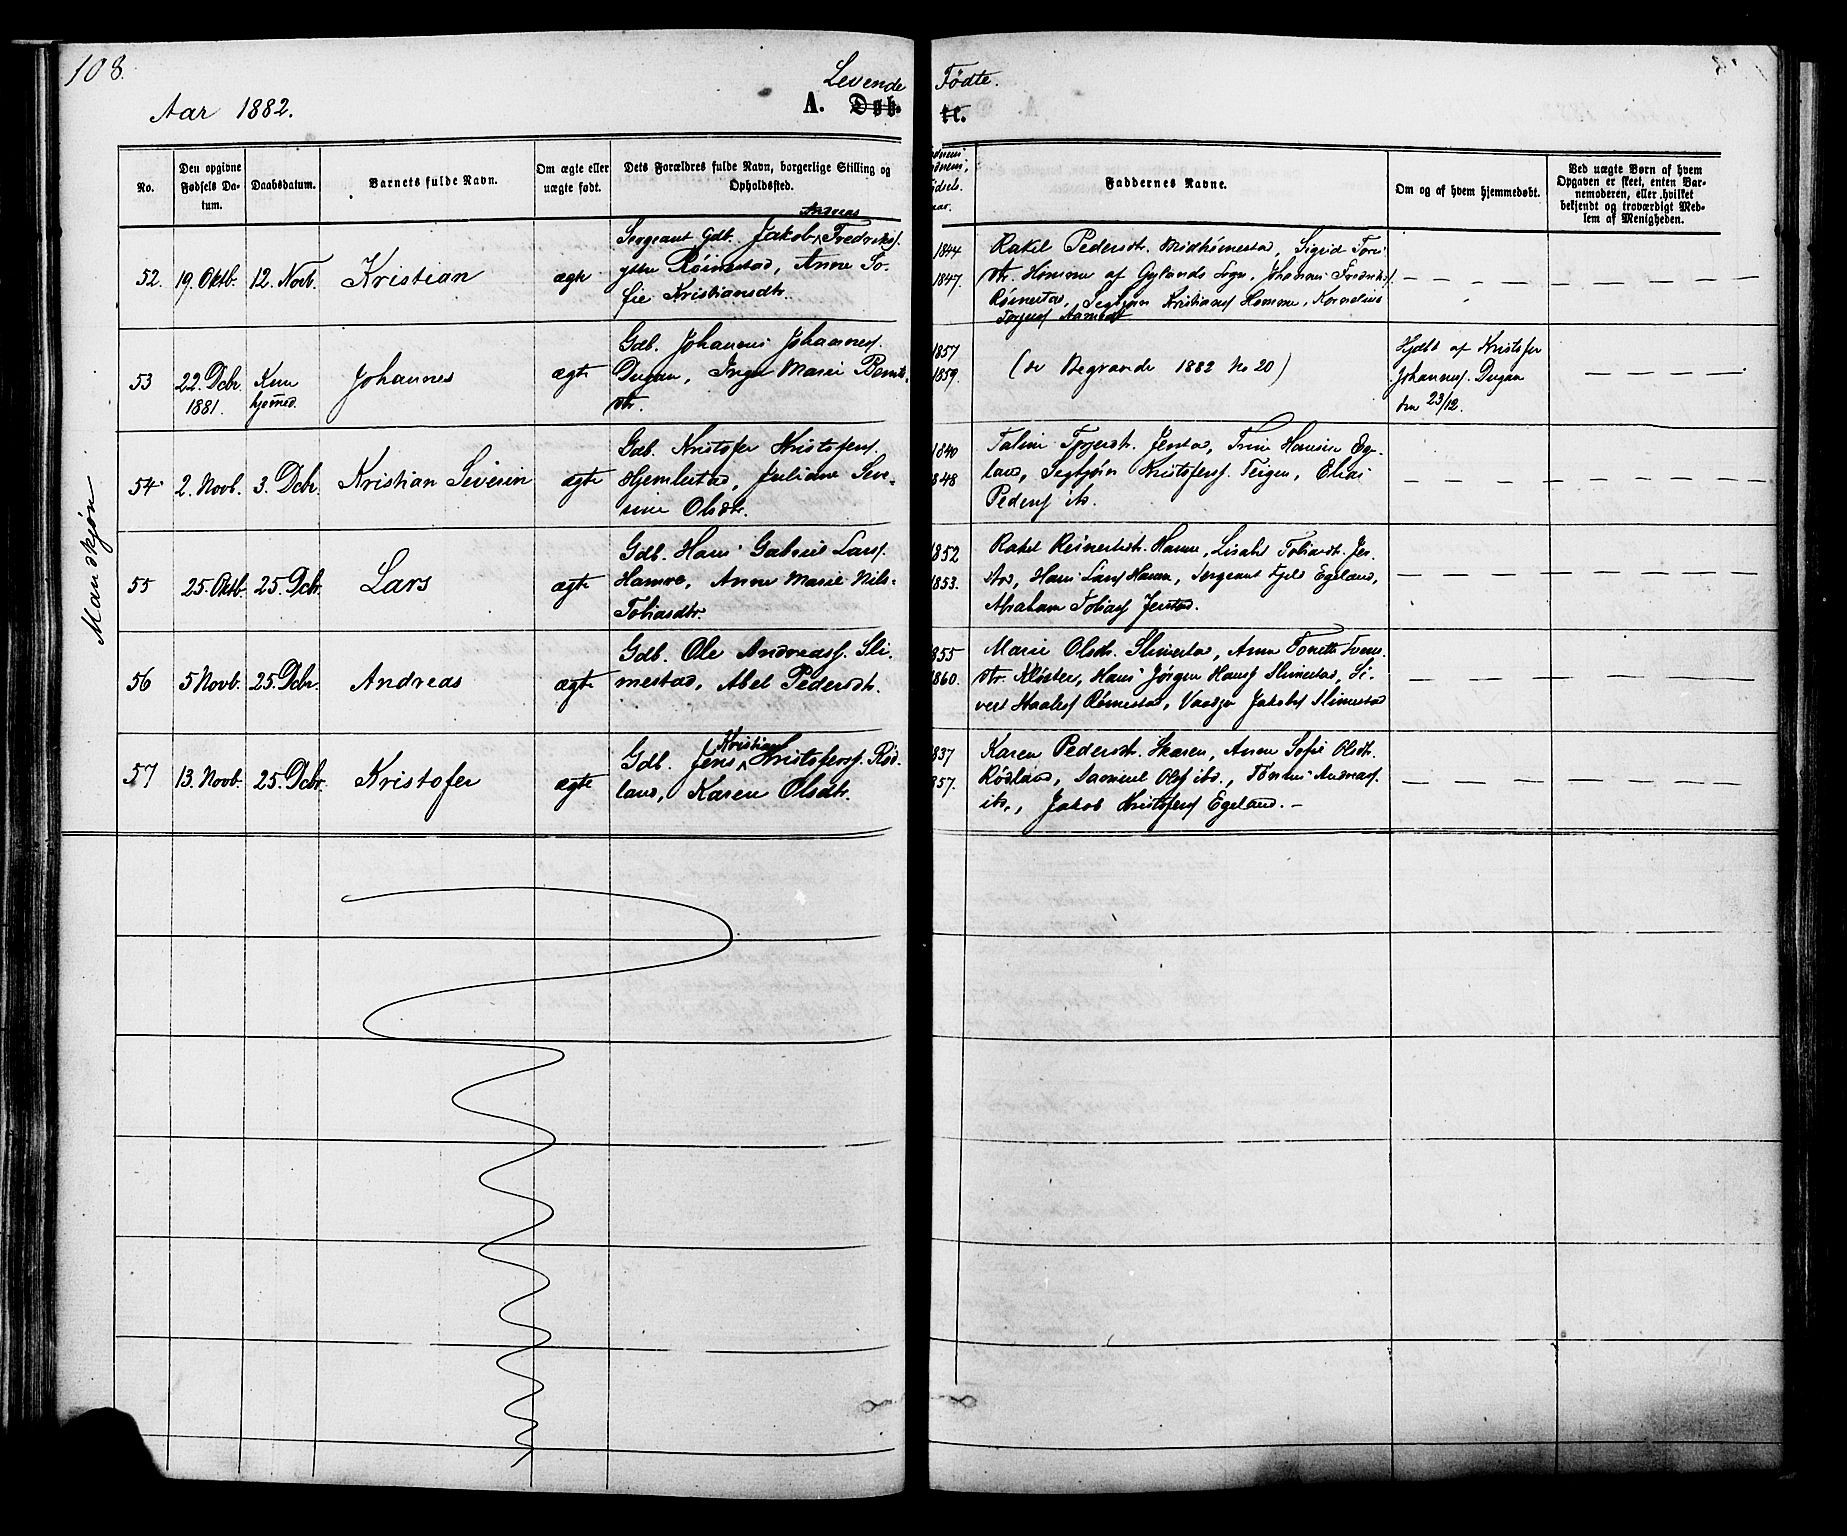 108.
Aar 1882.
Levende Fødte.
A. Døb- te.
Mandskjøn
No.
Den opgivne Fødsels Da-tum.
Daabsdatum.
Barnets fulde Navn.
Om ægte eller uægte født.
Dets Forældres fulde Navn, borgerlige Stilling og Opholdssted.
Faddernes Navne.
Om og af hvem hjemmedøbt.
Ved uægte Børn af hvem
Opgaven er skeet, enten Bar-
nemoderen, eller hvilket
bekjendt og troværdigt Med-
lem af Menigheden.
52. 19. Oktb. 12. Novb. Kristian ægte
Andreas
Sergeant Gdb. Jakob Fredriks.
ytre Røinestad, Anne So-
fie Kristiansdtr.
1844
1847.
Rakel Pedersdt. Midhømestad, Sigrid
dtr. Homme af Gylands Sogn, Johannes Fredriks.
Rømestad, Segbjørn Kristians. Homme, Kornelius
Torjers. Aamodt
53 22. Dcbr. 1881. Kun hjemmed. Johannes ægte
Gdb. Johannes Johannes.
Dugan, Inger Marie Bernts-
dtr.
1857
1859.
(se Begravede 1882 No 20)
Hjdbt af Kristofer
Johannes. Dugan
den 23/12.
54 2. Novb. 3. Dcbr. Kristian Severin ægte
Gdb. Kristofer Kristofers.
Hjemlestad, Juliane Seve-
rine Olsdtr.
1840
1848
Taline Torjersdt. Jerstad, Trine Hansen Eg-
land, Segbjørn Kristofers. Teigen, Elias
Peders. ibd.
55 25. Oktb. 25. Dcbr. Lars ægte
Gdb. Hans Gabriel Lars.
Hamre, Anne Marie Nils-
Tobiasdtr.
1852
1853.
Rakel Reinertsdt. Hamre, Lisabet Tobiasdt. Jer-
stad, Hans Lars. Hamre, Sergeant Egeland,
Abraham Tobias. Jerstad.
56 5 Novb. 25. Dcbr. Andreas ægte
Gdb. Ole Andreas. Sli-
mestad, Abel Pedersdt.
1855
1860.
Marie Olsdt. Slimestad, Anne Tonette
dtr. Kloster, Hans Jørgen Hans. Slimestad, Si-
vert Rømestad, Jakobs. Slimestad
57 13. Novb. 25. Dcbr. Kristofer ægte
Kristian
Gdb. Jens Kristofers. Rød-
land, Karen Olsdtr.
837
857.
Karen Pedersdt. Skaren, Anne Sofie Olsdt.
Rødland, Samuel Ols. ibd., Andreas.
ibd., Jakob Kristofers. Egeland. –